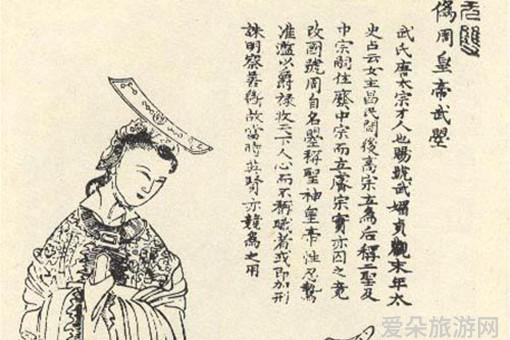 无雙
偽周皇帝武曌
武氏唐太宗才人也賜號武媚貞觀末年太
史占云女主昌民間後高宗立為后稱二聖及
中宗嗣位廢中宗而立睿宗實亦囚之竟
改國號周自名曌稱聖神皇帝性忍鷙
濫以爵祿收天下人心而不稱職者或即加刑
誅明察善故當時英賢亦競為之用
爱朵旅游网